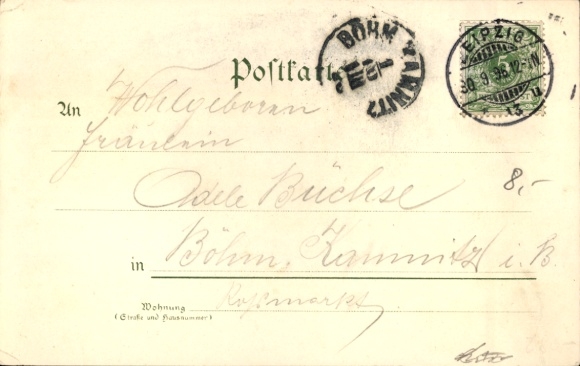 Postkarte
BÖHM. KAMNITZ
LEIPZIG
30.9.96.12-1N.
13 n
5
An Wohlgeboren
Fräulein
Adele Büchse
8,-
in Böhm. Kamnitz i. B.
Wohnung
(Straße und Hausnummer)
Roßmarkt